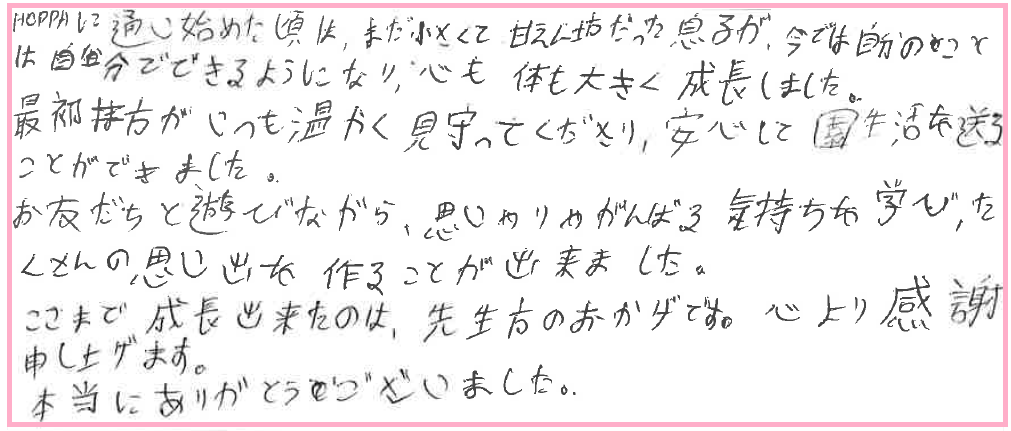 HOPPAに通い始めた頃は、まだ小さくて甘えん坊だった息子が、今では自分のこと
は自分でできるようになり、心も体も大きく成長しました。
最初 方がいつも温かく見守ってくださり、安心して園生活を送る
ことができました。
お友だちと遊びながら、思いやりやがんばる気持ちを学び、た
くさんの思い出を作ることが出来ました。
ここまで成長出来たのは、先生方のおかげです。心より感謝
申し上げます。
本当にありがとうございました。